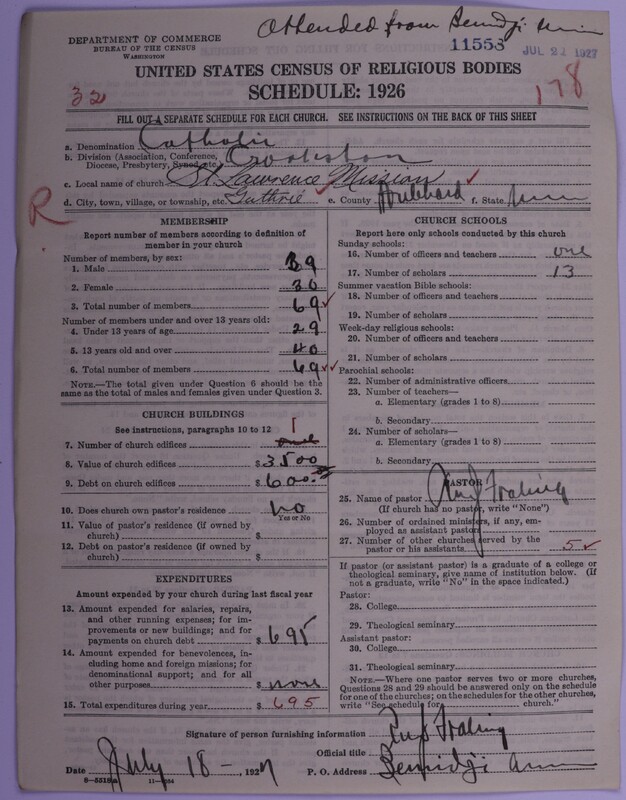 Attended from Bemidji Minn
DEPARTMENT OF COMMERCE
BUREAU OF THE CENSUS
WASHINGTON
11558
JUL 21 1927
UNITED STATES CENSUS OF RELIGIOUS BODIES
SCHEDULE: 1926
32
178
FILL OUT A SEPARATE SCHEDULE FOR EACH CHURCH. SEE INSTRUCTIONS ON THE BACK OF THIS SHEET
a. Denomination Catholic
b. Division (Association, Conference, Diocese, Presbytery, Synod, etc. Crookston
c. Local name of church St. Lawrence Mission ✓
d. City, town, village, or township, etc. Guthrie ✓ e. County Hubbard f. State Minn
R
MEMBERSHIP
Report number of members according to definition of
member in your church
Number of members, by sex:
1. Male 39
2. Female 30
3. Total number of members 69 ✓
Number of members under and over 13 years old:
4. Under 13 years of age 29
5. 13 years old and over 40
6. Total number of members 69 ✓✓
NOTE.—The total given under Question 6 should be the
same as the total of males and females given under Question 3.
CHURCH BUILDINGS
See instructions, paragraphs 10 to 12
7. Number of church edifices one 1
8. Value of church edifices $ 3500
9. Debt on church edifices $ 600.00
10. Does church own pastor's residence no
Yes or No
11. Value of pastor's residence (if owned by
church) $
12. Debt on pastor's residence (if owned by
church) $
EXPENDITURES
Amount expended by your church during last fiscal year
13. Amount expended for salaries, repairs,
and other running expenses; for im-
provements or new buildings; and for
payments on church debt $ 695
14. Amount expended for benevolences, in-
cluding home and foreign missions; for
denominational support; and for all
other purposes $ none
15. Total expenditures during year $ 695
CHURCH SCHOOLS
Report here only schools conducted by this church
Sunday schools:
16. Number of officers and teachers one
17. Number of scholars 13
Summer vacation Bible schools:
18. Number of officers and teachers
19. Number of scholars
Week-day religious schools:
20. Number of officers and teachers
21. Number of scholars
Parochial schools:
22. Number of administrative officers
23. Number of teachers—
a. Elementary (grades 1 to 8)
b. Secondary
24. Number of scholars—
a. Elementary (grades 1 to 8)
b. Secondary
PASTOR
25. Name of pastor
(If church has no pastor, write "None")
26. Number of ordained ministers, if any, em-
ployed as assistant pastors
27. Number of other churches served by the
pastor or his assistants 5 ✓
If pastor (or assistant pastor) is a graduate of a college or
theological seminary, give name of institution below. (If
not a graduate, write "No" in the space indicated.)
Pastor:
28. College
29. Theological seminary
Assistant pastor:
30. College
31. Theological seminary
NOTE.—Where one pastor serves two or more churches,
Questions 28 and 29 should be answered only on the schedule
for one of the churches; on the schedules for the other churches,
write "See schedule for church."
Signature of person furnishing information
Official title
Date July 18 - 1927 P. O. Address Bemidji Minn
8-5518a